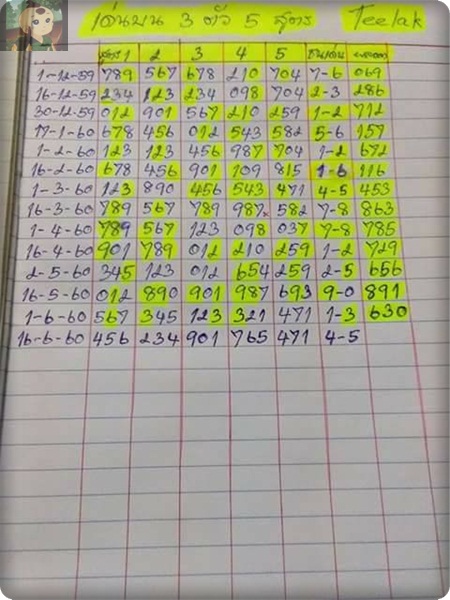 เด่นบน 3 ตัว 5 สูตร Teelak
สูตร 1 2 3 4 5
1-12-59 789 567 678 210 704 7-6 069
16-12-59 234 123 234 098 704 2-3 286
30-12-59 012 901 567 210 259 1-2 712
17-1-60 678 456 012 543 582 5-6 157
1-2-60 123 123 456 987 704 1-2 672
16-2-60 678 456 901 109 815 1-6 116
1-3-60 123 890 456 543 471 4-5 453
16-3-60 789 567 789 987 582 7-8 863
1-4-60 789 567 123 098 037 7-8 785
16-4-60 901 789 012 210 259 1-2 729
2-5-60 345 123 012 654 259 2-5 656
16-5-60 012 890 901 987 693 9-0 891
1-6-60 567 345 123 321 471 1-3 630
16-6-60 456 234 901 765 471 4-5